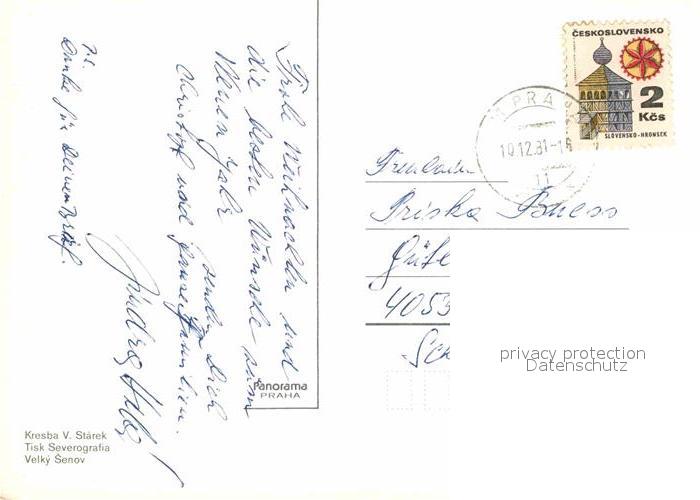 Frohe Weihnachten und
die besten Wünsche zum
Neuen Jahr
senden Dich
Christoph und ganze Familien.
P.S.
Danke für Deinen Brief.
Panorama
PRAHA
Kresba V. Stárek
Tisk Severografia
Velký Šenov
ČESKOSLOVENSKO
2
Kčs
SLOVENSKO-HRONSEK
1 PRAHA
10.12.81-16
11
Fräulein
Priska Buess
Güte
4053
Sch
privacy protection
Datenschutz